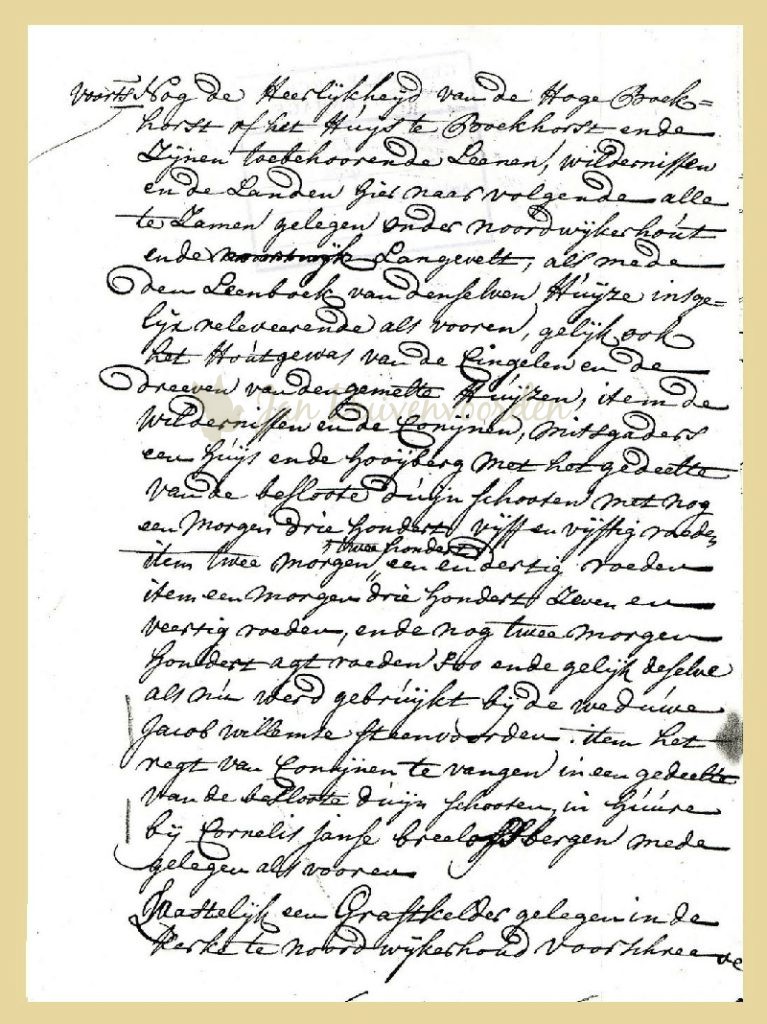 voorts Nog de Heerlijkheijd van de Hoge Boek=
horst of het Huys te Boekhorst ende
Zijnen toebehoorende Leenen, wildernissen
en de Landen hier naar volgende alle
te Zamen gelegen onder noordwijkerhout
ende noortwijk Langevelt, als mede
den Leenboek van denselven Huyze insge=
lijx releveerende als vooren, gelijk ook
het Houtgewas van de Cingelen en de
dreeven van den gemelte Huyzen, item de
Wildernissen en de Conijnen, mitsgaders
een huys ende hooyberg met het gedeelte
van de besloote duijn schooten met nog
een morgen drie hondert vijff en vijftig roeden
twee hondert
item twee morgen een en dertig roeden
item een morgen drie hondert Zeven en
veertig roeden, ende nog twee morgen
hondert agt roeden soo ende gelijk deselve
als nu werd gebruijkt bij de weduwe
Jacob willemse steenvoorden. item het
regt van Conijnen te vangen in een gedeelte
van de besloote duijn schooten, in huure
bij Cornelis janse bergen mede
gelegen als vooren
Laastelijk een Graftkelder gelegen in de
kerke te noordwijkerhoud voorschreeve
Jan Duivenvoorden